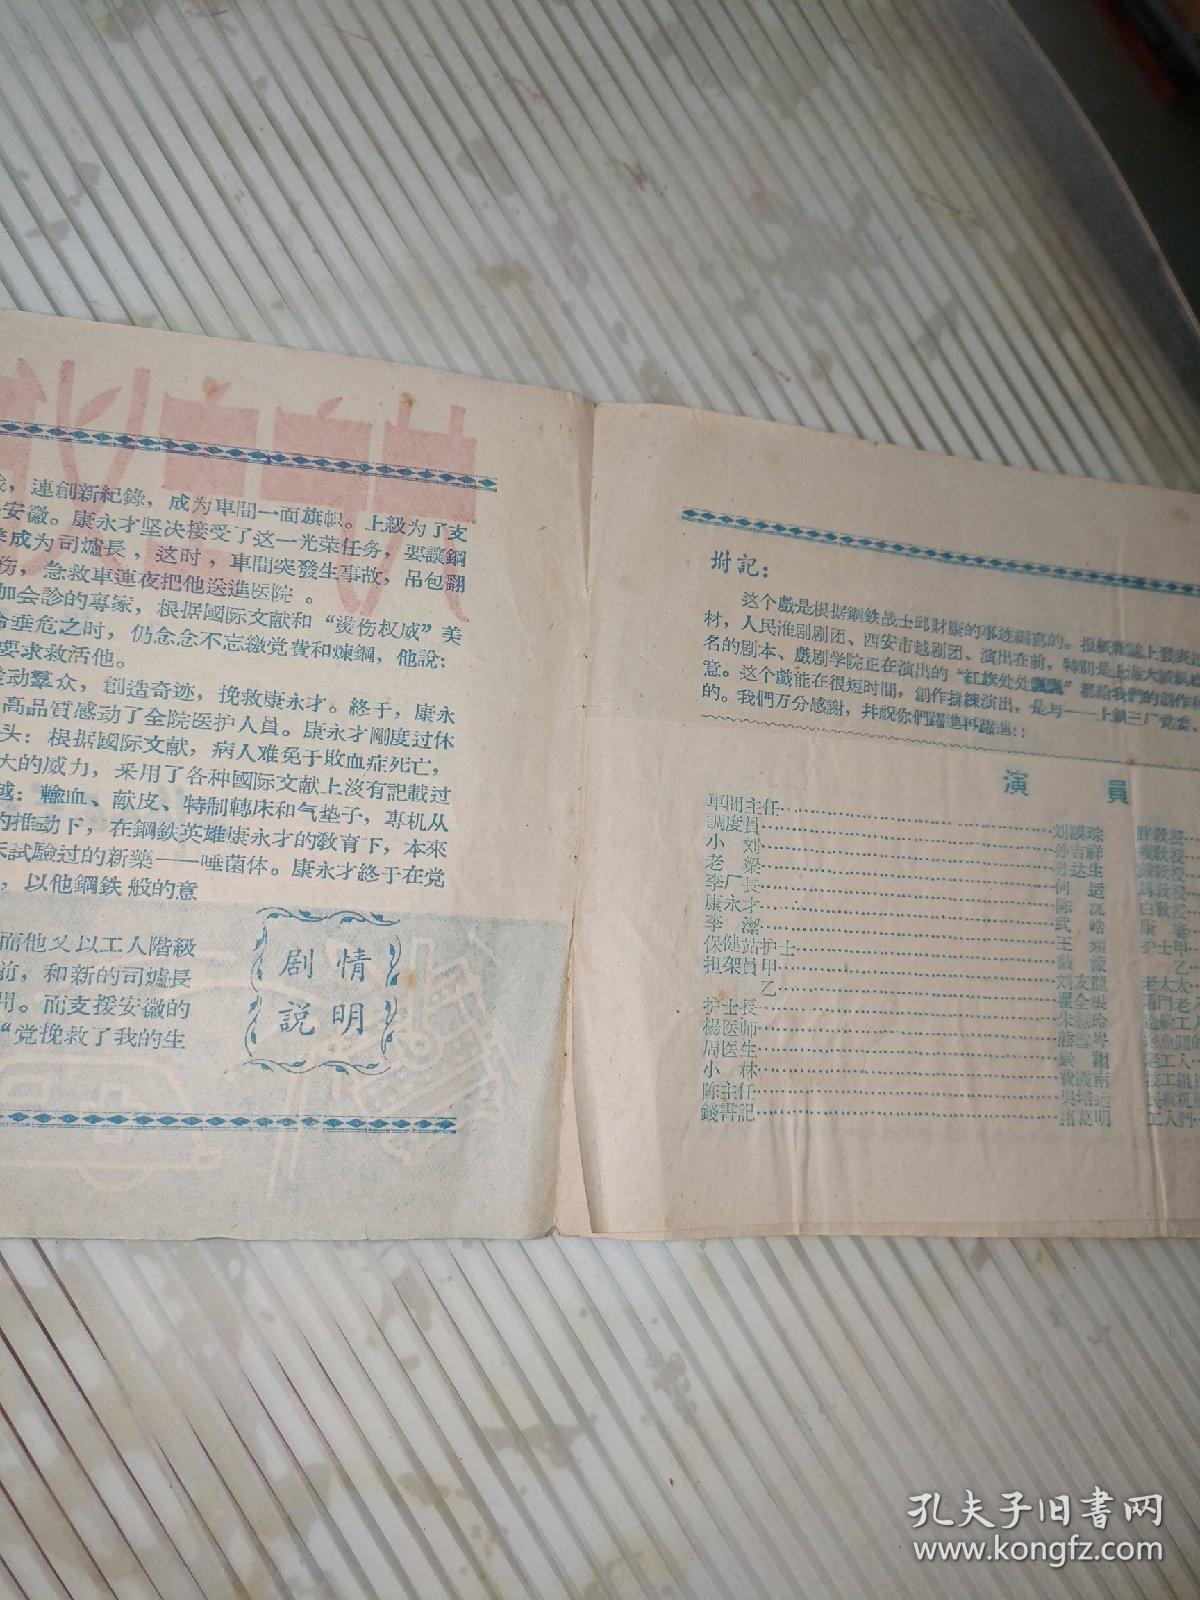 連創新紀錄，成为車間一面旗帜。上級为了支
安徽。康永才坚决接受了这一光荣任务，要讓鋼
成为司爐長，这时，車間突發生事故，吊包翻
伤，急救車連夜把他送進医院。
加会診的專家，根据國际文献和“燙伤权威”美
垂危之时，仍念念不忘繳党費和煉鋼，他說：
要求救活他。
动羣众，創造奇迹，挽救康永才。終于，康永
高品質感动了全院医护人員。康永才剛度过休
头：根据國际文献，病人难免于敗血症死亡，
大的威力，采用了各种國际文献上沒有記載过
越：輸血、献皮、特制轉床和气垫子，專机从
的推动下，在鋼鉄英雄康永才的敎育下，本來
試驗过的新藥——唾菌体。康永才終于在党
，以他鋼鉄般的意
而他又以工人階級
前，和新的司爐長
用。而支援安徽的
“党挽救了我的生
剧情
說明
附記：
这个戲是根据鋼鉄战士邱財康的事迹編寫的。报紙雜誌上發表过
材，人民淮剧剧团、西安市越剧团、演出在前，特別是上海大
名的剧本、戲剧学院正在演出的“紅旗处处飄飄”都給我們的創作
意。这个戲能在很短时間，創作排練演出，是与——上鋼三厂党委、
的。我們万分感謝，并祝你們躍進再躍進!!
演 員
車間主任
調度員 孙吉祥
小刘
老梁 何适
李厂長
康永才 武皓
李潔 王
保健站护士
担架員甲 刘友龍 老太太
乙
护士長 朱慧玲
楊医师
周医生
小林 費霞南
陈主任
錢書記 諸葛明 工人們
孔夫子旧書网
www.kongfz.com